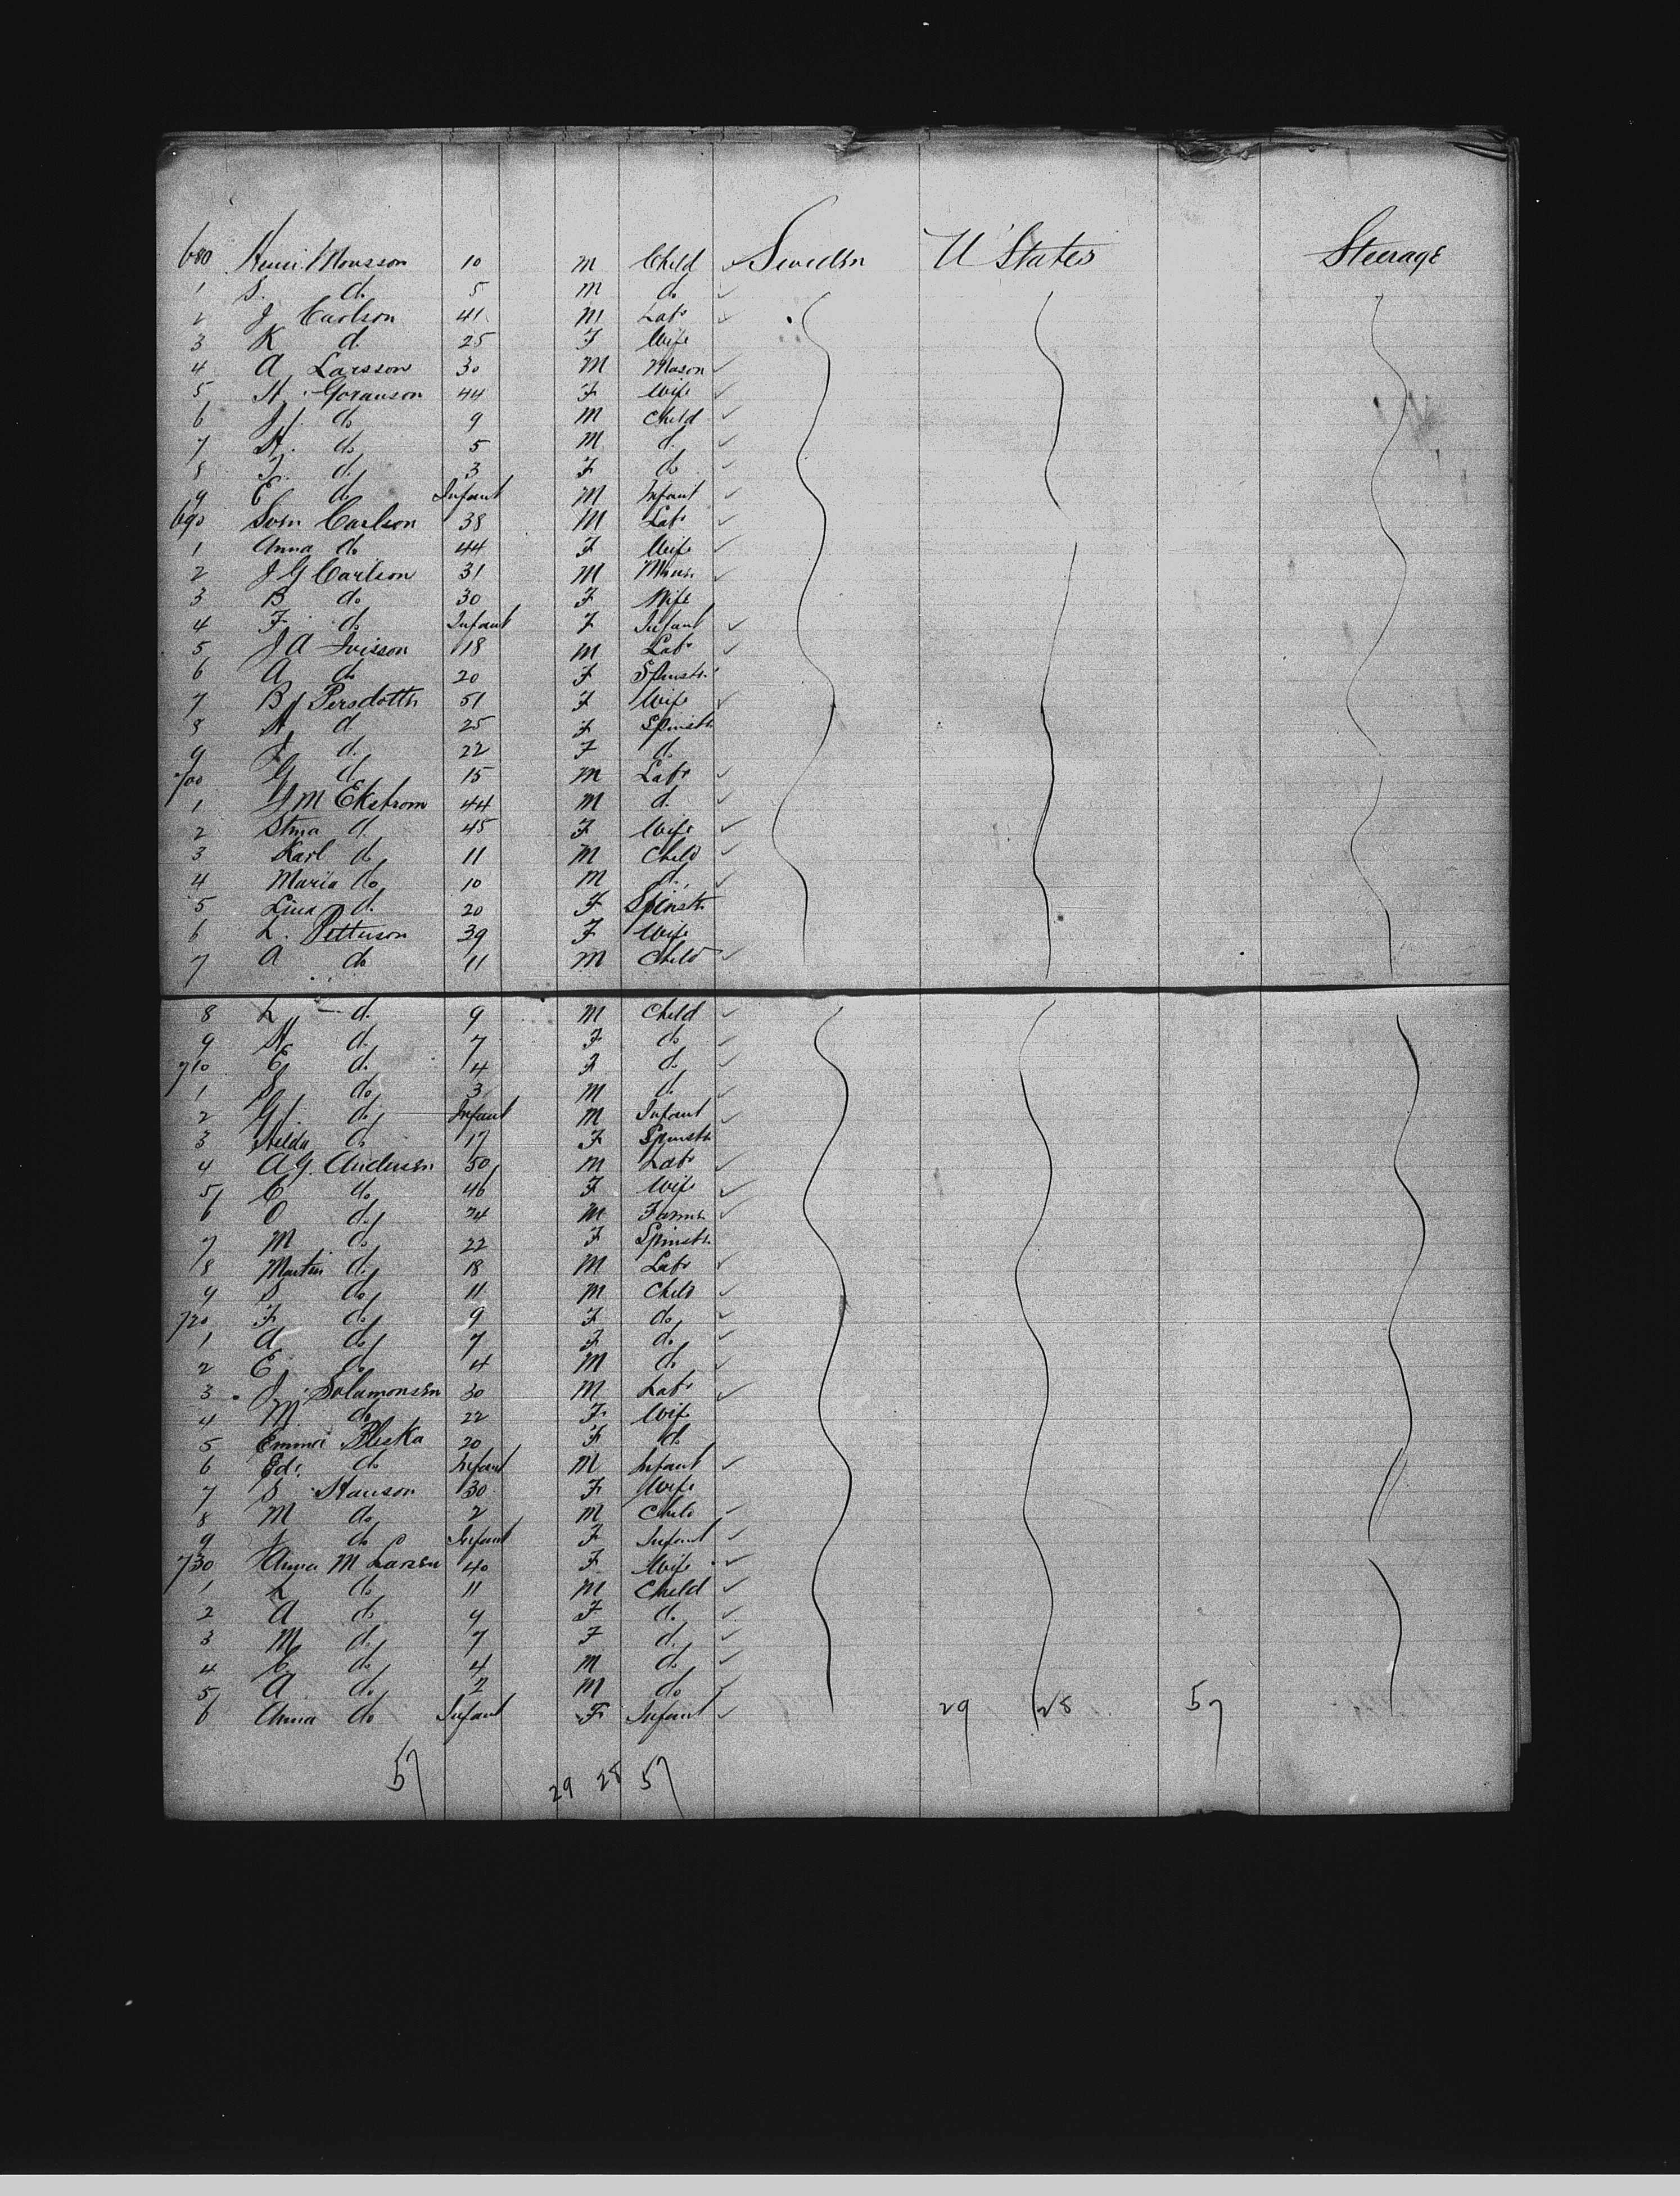 680 Henri Monsson 10 M Child Sweden U States Steerage
1 S. do 5 M do
2 J Carlson 41 M Labr
3 K d. 25 F Wife
4 A Larsson 30 M Mason
5 H. Goranson 44 F Wife
6 J. do 9 M Child
7 H. do 5 M d.
8 d. 3 F do
9 E d. Infant M Infant
690 Sven Carlson 38 M Labr
1 Anna do 44 F Wife
2 J G Carlson 31 M
3 B do 30 F Wife
4 F. do Infant F Infant
5 J A 18 M Labr
6 A do 20 F Spinstr.
7 B Persdottr 51 F Wife
8 H d. 25 F Spinstr
9 d. 22 F d.
700 G d. 15 M Labr
1 J M Ekstrom 44 M d.
2 Stina d. 45 F Wife
3 Karl do 11 M Child
4 Maria do 10 M d.
5 Lina d. 20 F Spinstr
6 L. Petterson 39 F Wife
7 A do 11 M Child
8 L d. 9 M Child
9 H d. 7 F do
710 E d. 4 F d.
1 S do 3 M d.
2 G. do Infant M Infant
3 Hilda do 17 F Spinstr
4 A G. Andersen 50 M Labr
5 C do 46 F Wife
6 O d. 24 M Farmr
7 M do 22 F Spinstr
8 Martin d. 18 M Labr
9 S do 11 M Child
720 F do 9 F do
1 A do 7 F do
2 E do 4 M do
3 J. Solamonsen 30 M Labr
4 M. do 22 F Wife
5 Emma Bliska 20 F do
6 Ed. do Infant M Infant
7 S. Hanson 30 F Wife
8 M do 2 M Child
9 J do Infant F Infant
730 Anna M Larsen 40 F Wife
1 L do 11 M Child
2 A do 9 F d.
3 M d. 7 F d.
4 C. do 4 M do
5 A do 2 M do
6 Anna do Infant F Infant 29 28 57
57 29 28 57